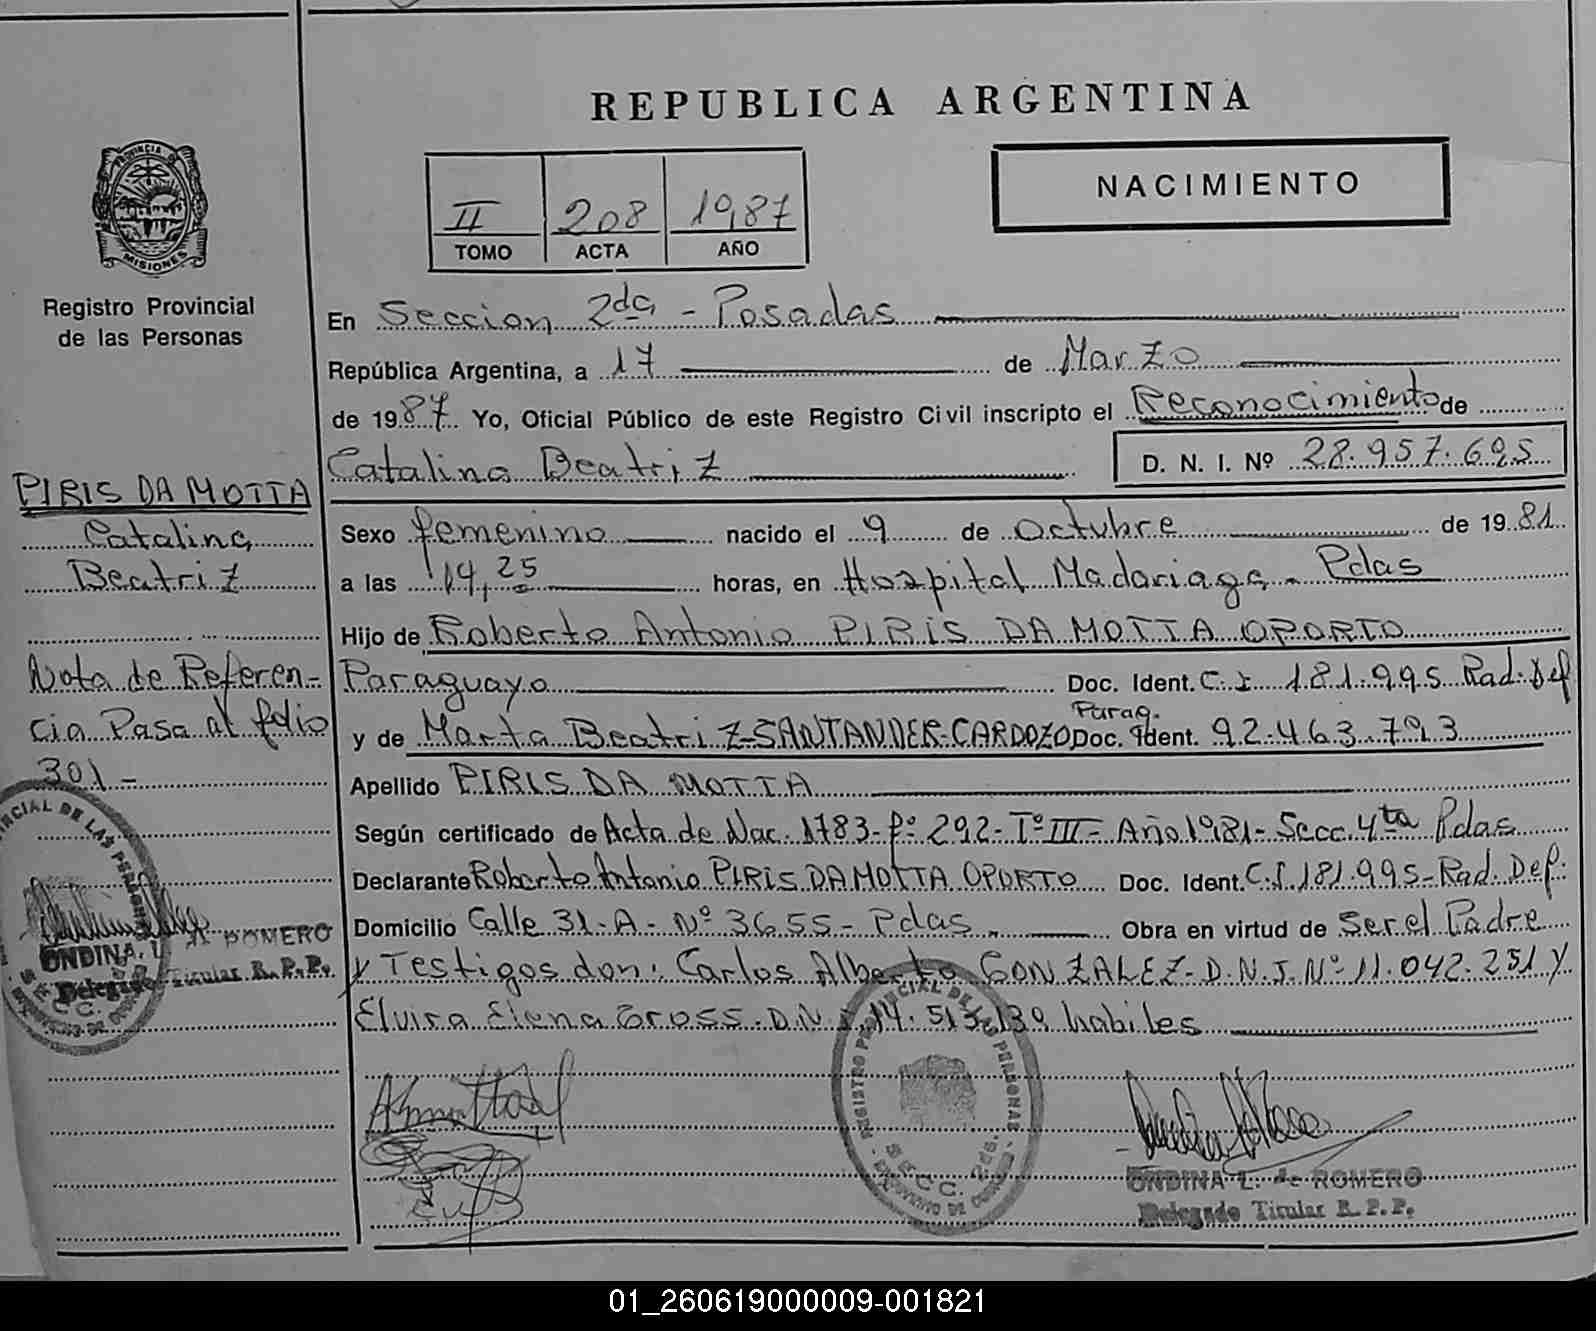 REPUBLICA ARGENTINA
PROVINCIA DE
MISIONES
Registro Provincial
de las Personas
II 208 1987
TOMO ACTA AÑO
NACIMIENTO
En Seccion 2da - Posadas
República Argentina, a 17 de Marzo
de 1987 Yo, Oficial Público de este Registro Civil inscripto el Reconocimiento de
Catalina Beatriz D. N. I. Nº 28.957.695
Sexo femenino nacido el 9 de Octubre de 1981
a las 14,25 horas, en Hospital Madariaga - Pdas
Hijo de Roberto Antonio PIRIS DA MOTTA OPORTO
Paraguayo Doc. Ident. C.I 181.995 Rad. Def
y de Marta Beatriz SANTANDER-CARDOZO Parag. Doc. Ident. 92.463.793
Apellido PIRIS DA MOTTA
Según certificado de Acta de Nac. 1783-fº 292-Tº III- Año 1981- Secc. 4ta Pdas
Declarante Roberto Antonio PIRIS DA MOTTA OPORTO Doc. Ident. C.I. 181.995-Rad. Def.
Domicilio Calle 31-A-Nº 3655-Pdas. Obra en virtud de Ser el Padre
y Testigos don: Carlos Alberto GONZALEZ-D.N.I. Nº 11.042.251 y
Elvira Elena Gross. D.N.I. 14. habiles
PIRIS DA MOTTA
Catalina
Beatriz
Nota de Referen-
cia Pasa al folio
301-
ONDINA L. de ROMERO
Delegado Titular R.P.P.
REGISTRO PROVINCIAL DE LAS PERSONAS
SECC. 2da.
ONDINA L. de ROMERO
Delegado Titular R.P.P.
01_260619000009-001821